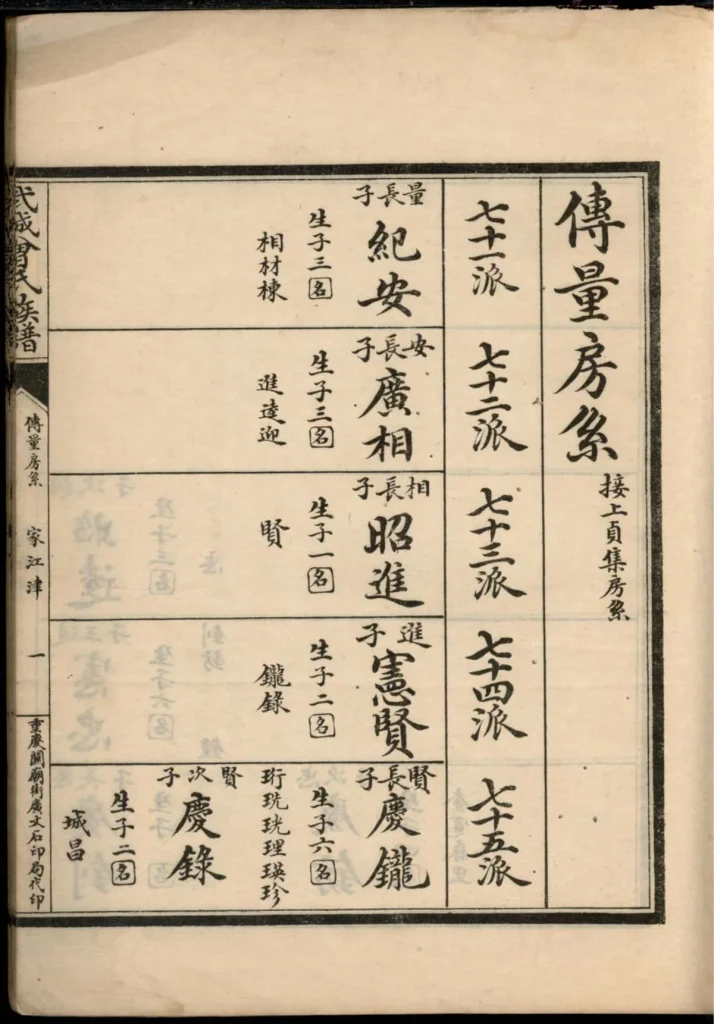 傳量房系
接上貞集房系
七十一派
七十二派
七十三派
七十四派
七十五派
量長子
紀安
生子三名
相材棟
安長子
廣相
生子三名
進逵迎
相長子
昭進
生子一名
賢
進子
憲賢
生子二名
鑨錄
賢長子
慶鑨
生子六名
珩珖珖理瑛珍
賢次子
慶錄
生子二名
城昌
武城曾氏族譜
傳量房系
家江津
一
重慶關廟街廣文石印局代印